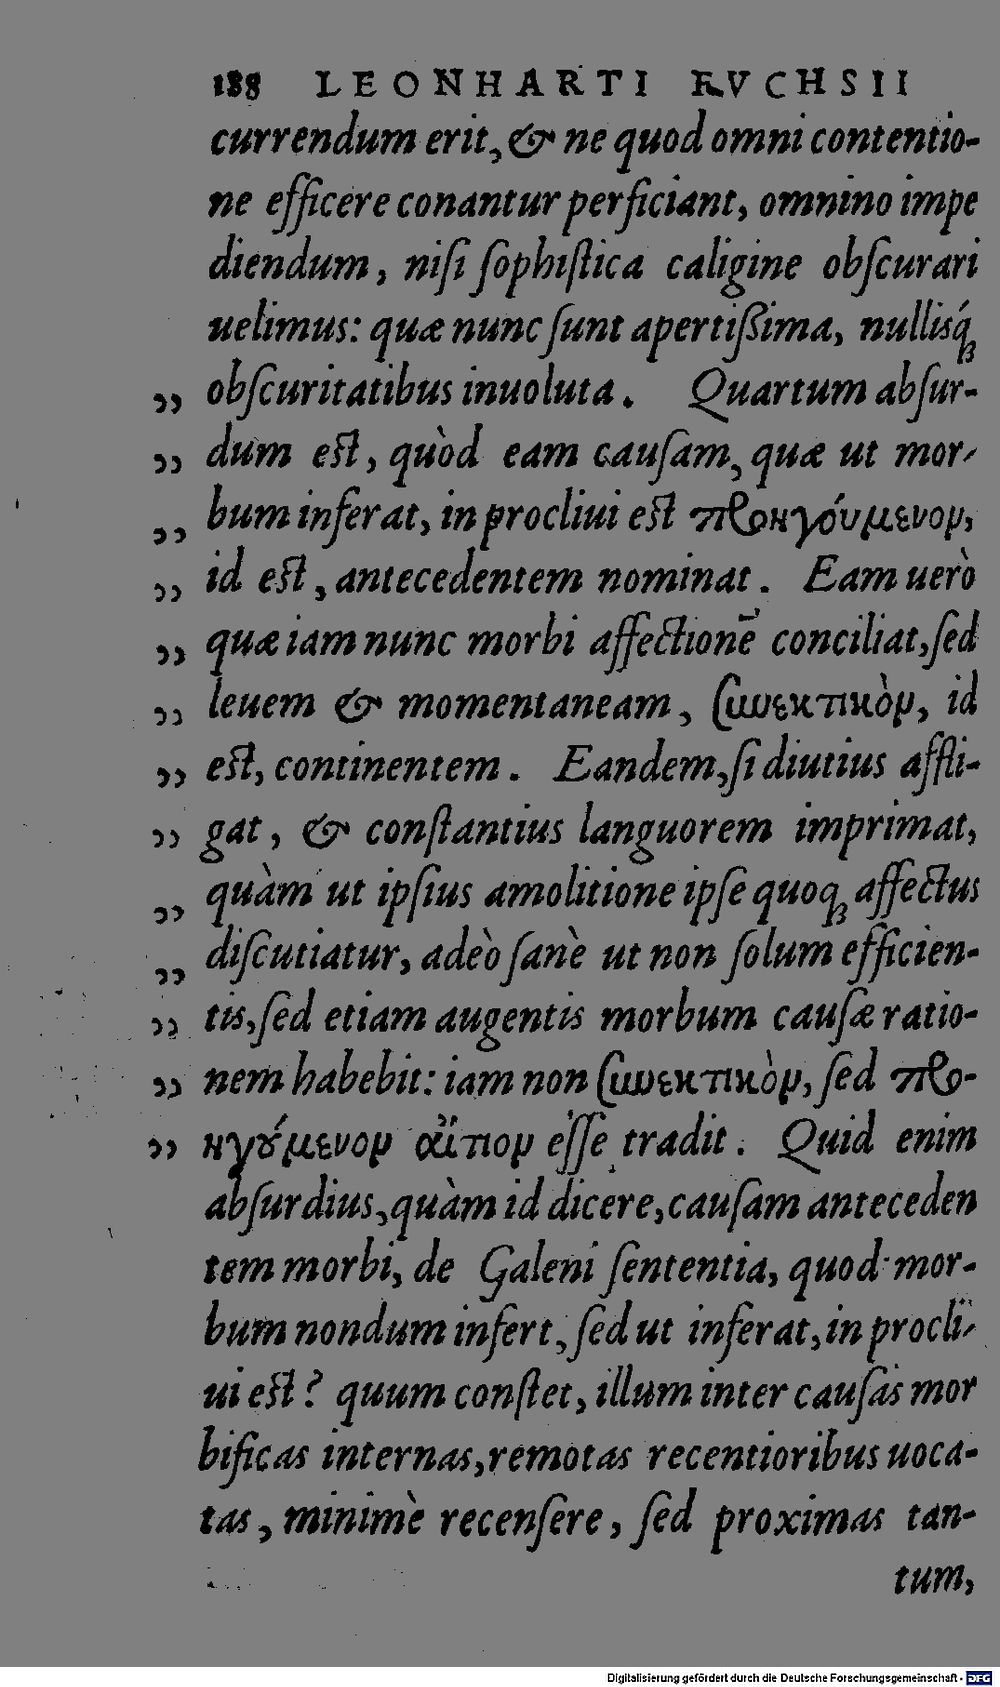 188 LEONHARTI FVCHSII
currendum erit, & ne quod omni contentio-
ne efficere conantur perficiant, omnino impe
diendum, niſi ſophiſtica caligine obſcurari
uelimus: quæ nunc ſunt apertißima, nullisq́ꝫ
„ obſcuritatibus inuoluta. Quartum abſur-
„ dum est, quòd eam cauſam, quæ ut mor-
„ bum inferat, in procliui est προηγούμενον,
„ id est, antecedentem nominat. Eam uerò
„ quæ iam nunc morbi affectionē conciliat, ſed
„ leuem & momentaneam, ſυνεκτικὸν, id
„ est, continentem. Eandem, ſi diutius affli-
„ gat, & conſtantius languorem imprimat,
„ quàm ut ipſius amolitione ipſe quoqꝫ affectus
„ diſcutiatur, adeò ſanè ut non ſolum efficien-
„ tis, ſed etiam augentis morbum cauſæ ratio-
„ nem habebit: iam non ſυνεκτικὸν, ſed προ-
„ ηγούμενον αἴτιον eſſe tradit. Quid enim
abſurdius, quàm id dicere, cauſam anteceden
tem morbi, de Galeni ſententia, quod mor-
bum nondum infert, ſed ut inferat, in procli-
ui est? quum conſtet, illum inter cauſas mor
bificas internas, remotas recentioribus uoca-
tas, minimè recenſere, ſed proximas tan-
tum,
Digitalisierung gefördert durch die Deutsche Forschungsgemeinschaft - DFG